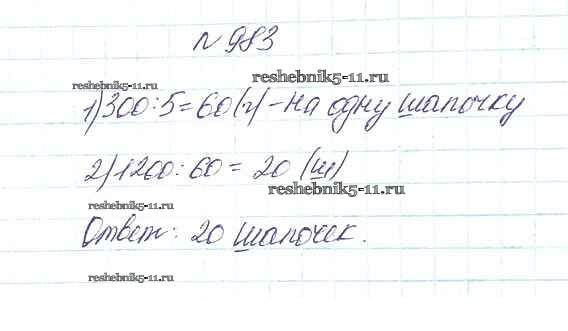 N 983
reshebnik5-11.ru
reshebnik5-11.ru
1) 300:5=60(г)-на одну шапочку
2) 1200:60=20 (ш)
reshebnik5-11.ru
reshebnik5-11.ru
Ответ: 20 шапочек.
reshebnik5-11.ru